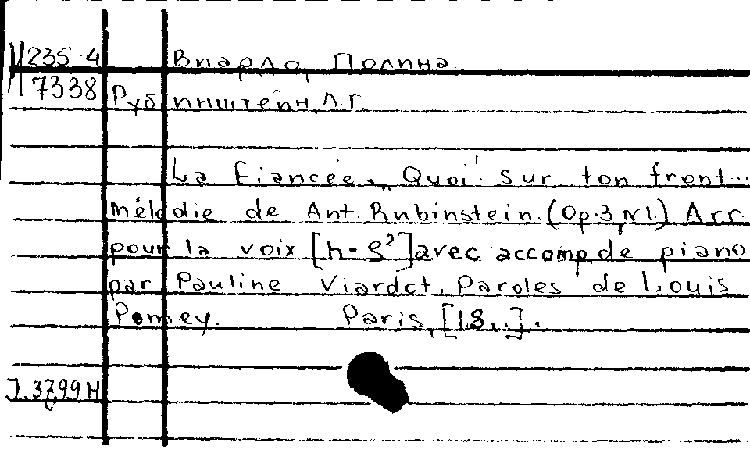 235-4 Виардо, Полина
7338 Рубинштейн, А.Г.
La Fiancée. Quoi! Sur ton front...
Mélodie de Ant. Rubinstein. (Op. 3, N1.) Arr.
pour la voix [h-g²] avec accomp. de piano
par Pauline Viardot. Paroles de Louis
Pomey. Paris, [18..].